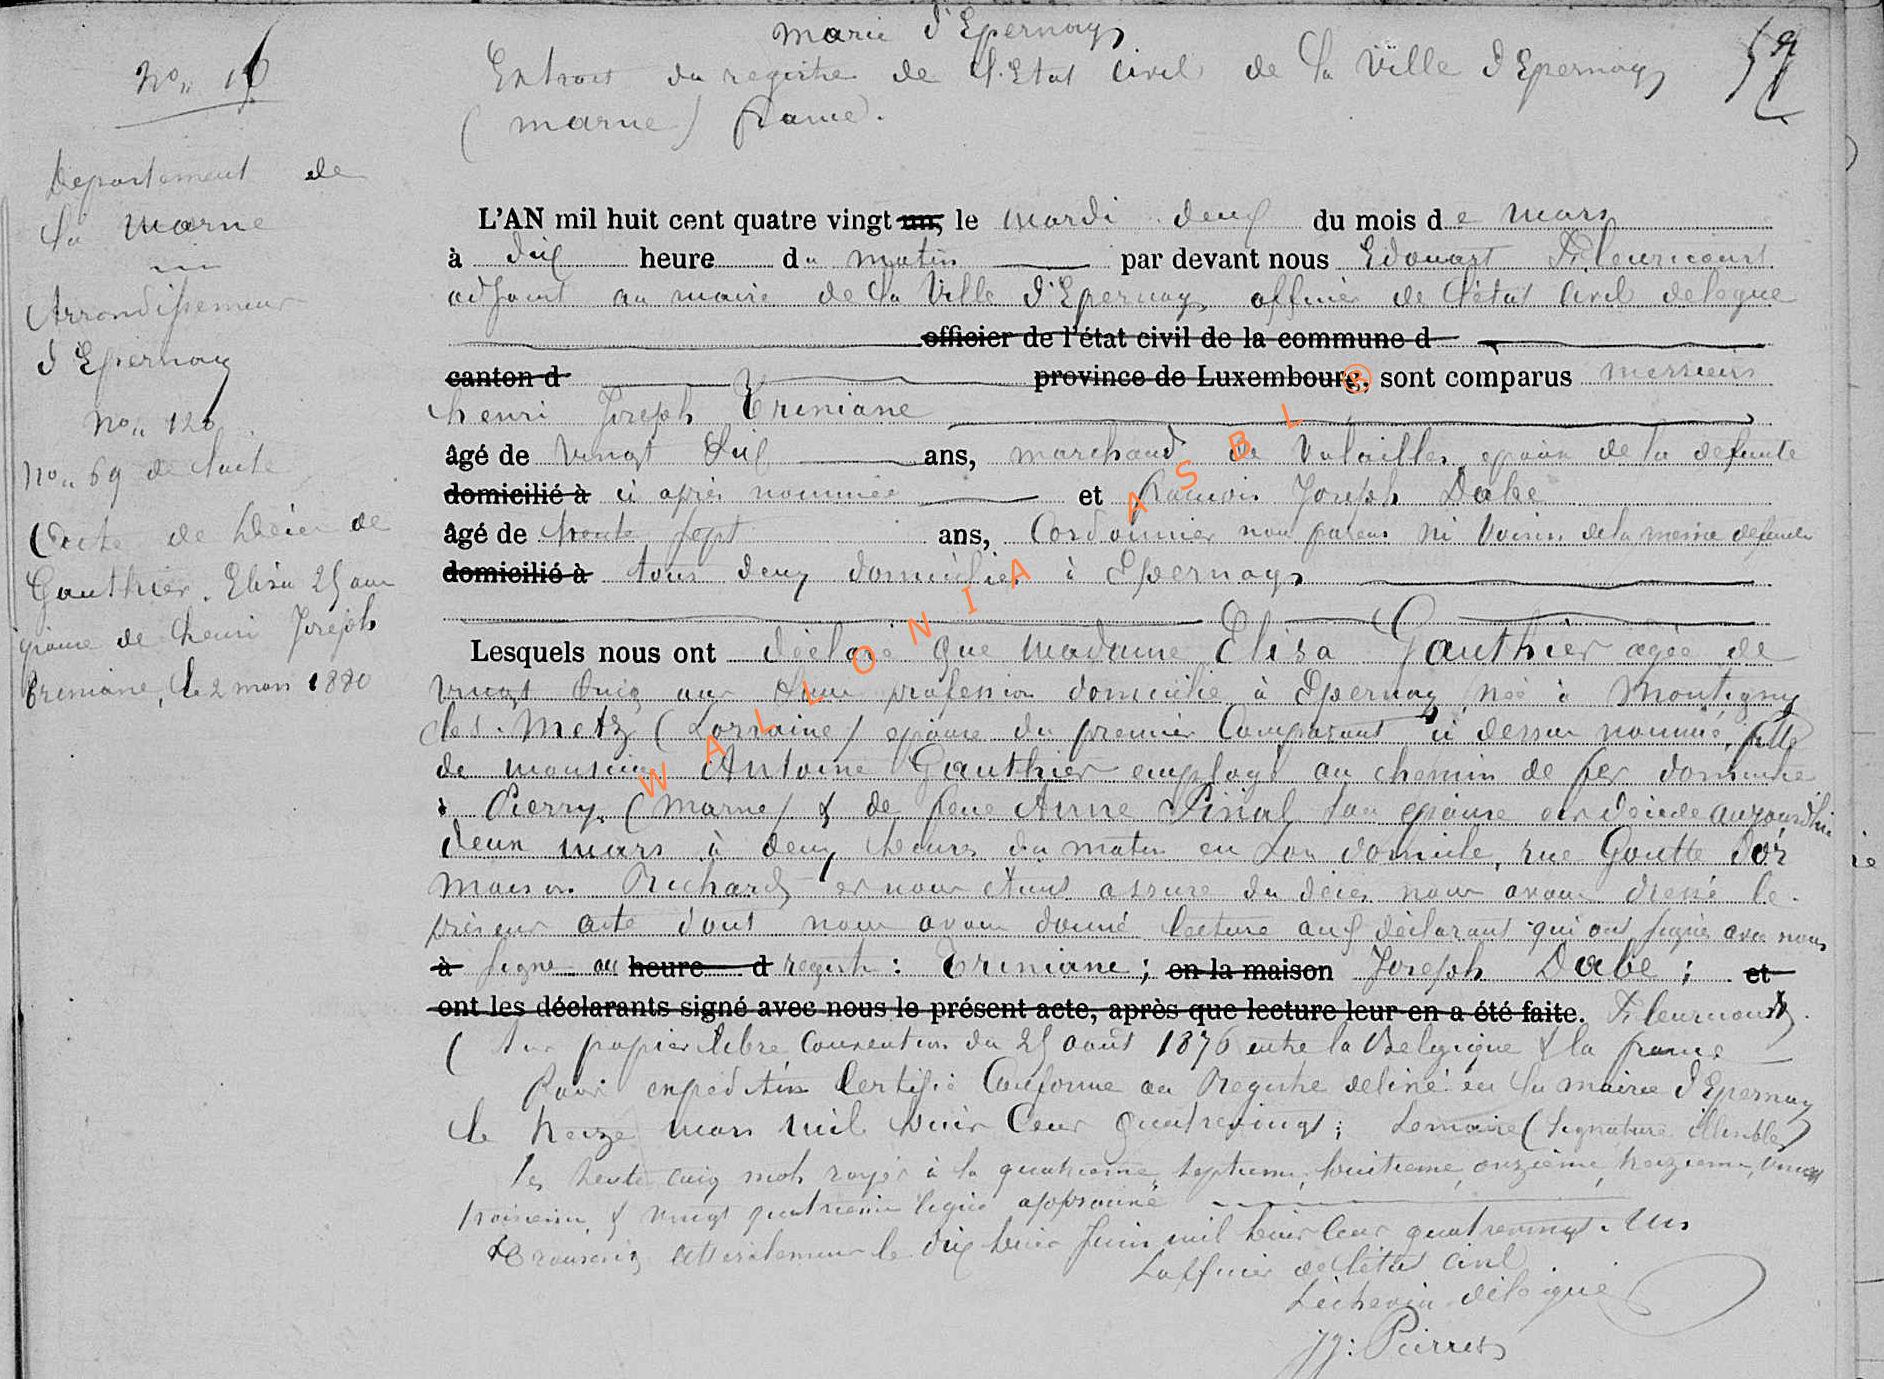 marie d'Epernay
Extrait du registre de l'Etat civil de la Ville d'Epernay
(marne) france.
52
No. 16
Departement de
la marne
Arrondissement
d'Epernay
No. 120
No. 69 de suite
Acte de Décès de
Gauthier. Elisa 25 ans
épouse de henri Joseph
Treniane, le 2 mars 1880
L'AN mil huit cent quatre vingt un, le mardi deux du mois de mars
à dix heure du matin par devant nous Edouart Fleuricourt
adjoint au maire de la Ville d'Epernay officier de l'état civil delegue
officier de l'état civil de la commune d
canton d province de Luxembourg, sont comparus messieurs
henri Joseph Treniane
âgé de vingt dix ans, marchand de volailles epoux de la defunte
domicilié à ci après nommée et francois Joseph Dabe
âgé de trente sept ans, Cordonnier non parent ni voisin de la meme defunte
domicilié à tous deux domicilies à Epernay
Lesquels nous ont déclaré que madame Elisa Gauthier agée de
vingt cinq ans sans profession domicilié à Epernay née à Montigny
les. Metz (Lorraine) épouse du premier Comparant ci dessus nommé, fille
de monsieur Antoine Gauthier employé au chemin de fer domicilié
à Pierry (marne) & de feue Anne Pinal son épouse est décédé aujourd'hui
deux mars à deux heures du matin en son domicile, rue Goutte d'or
maison Richard et nous étant assuré du décès nous avons dressé le
présent acte dont nous avons donné lecture aux déclarant qui ont signés avec nous
à signé au heure d registre : Treniane ; en la maison Joseph Dabe ; et
ont les déclarants signé avec nous le présent acte, après que lecture leur en a été faite. Fleuricourt
(sur papier libre convention du 25 août 1876 entre la Belgique & la france
Pour expédition Certifié Conforme au Registre délivré en la mairie d'Epernay
le treize mars mil huit cent quatrevingt ; Le maire (signature illisible)
les trente cinq mots rayés à la quatrieme, septieme, huitieme, onzième, treizieme, vingt
troisieme, & vingt quatrieme lignes approuvé
le dix huit Juin mil huit cent quatrevingt. Un
L'officier de l'état civil
L'échevin délégué
JJ: Pierret
WALLONIA ASBL ®